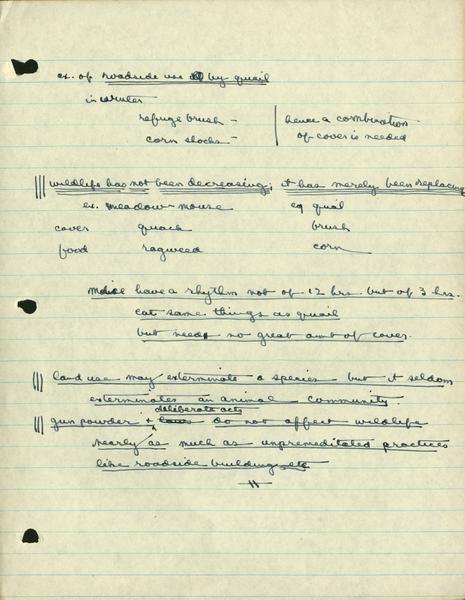 ex. of roadside use by quail
in winter
refuge brush -
corn shocks -
hence a combination
of cover is needed
wildlife has not been decreasing; it has merely been replacing
ex. meadow-mouse eq quail
cover quack brush
food ragweed corn
have a rhythm not of 12 hrs. but of 3 hrs.
eat same things as quail
but needs no great amt of cover.
land use may exterminate a species but it seldom
exterminates an animal community
deliberate acts
gun powder & laws do not affect wildlife
nearly as much as unpremeditated practices
like roadside building etc